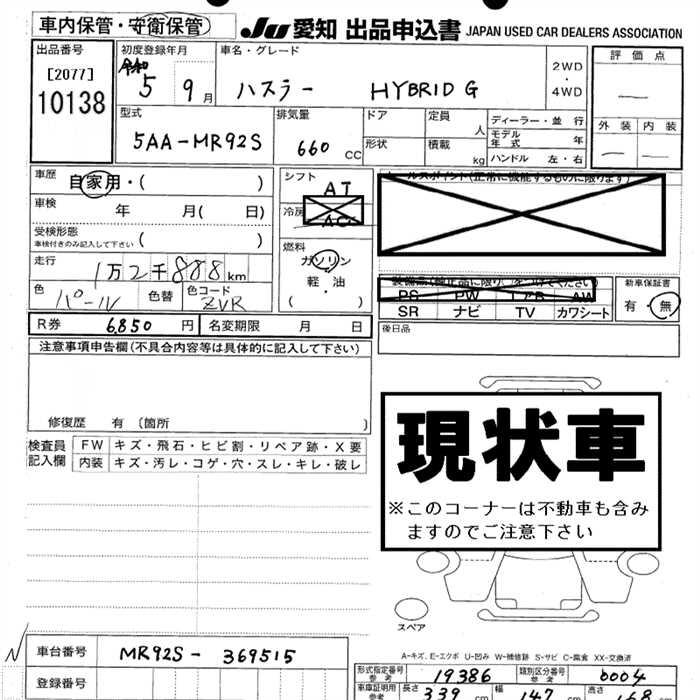 車内保管・守衛保管
JU 愛知 出品申込書 JAPAN USED CAR DEALERS ASSOCIATION
出品番号 [2077] 10138
初度登録年月 令和 5 9月
車名・グレード ハスラー HYBRID G
2WD・4WD
評価点
外装 内装
型式 5AA-MR92S
排気量 660 CC
ドア 形状
定員 人 積載 kg
ディーラー・並行
モデル年式 年
ハンドル 左・右
車歴 自家用・( )
車検 年 月( 日)
受検形態 車検付きのみ記入して下さい ( )
走行 1万2千888km
色 パール 色替 色コード ZVR
シフト AT
冷房 AC
燃料 ガソリン・軽油・( )
セールスポイント(正常に機能するものに限ります)
装備品(純正品に限り○をつけてください)
PS PW エアB AW
SR ナビ TV カワシート
新車保証書 有・無
後日品
R券 6,850円 名変期限 月 日
注意事項申告欄(不具合内容等は具体的に記入して下さい)
修復歴 有 〔箇所 〕
検査員記入欄
FW キズ・飛石・ヒビ割・リペア跡・X要
内装 キズ・汚レ・コゲ・穴・スレ・キレ・破レ
現状車
※このコーナーは不動車も含み
ますのでご注意下さい
スペア
A-キズ、E-エクボ U-凹み W-補修跡 S-サビ C-腐食 XX-交換済
車台番号 MR92S-369515
登録番号
形式指定番号 参考 19386
類別区分番号 参考 0004
車庫証明用 参考 長さ 339cm 幅 147cm 高さ 168cm